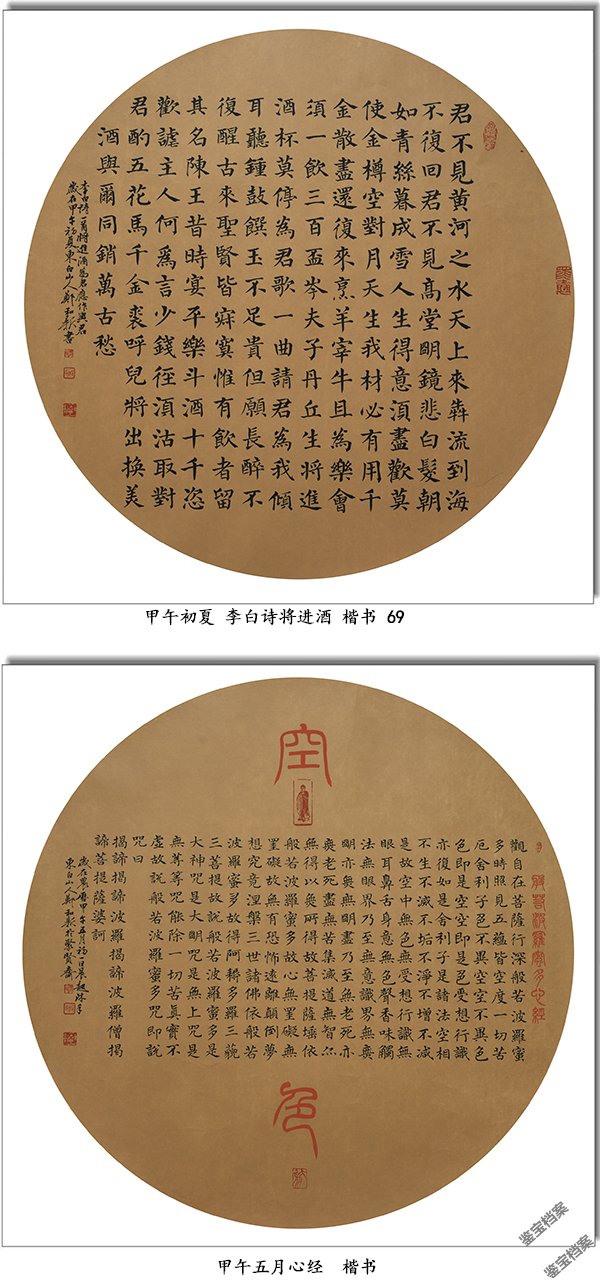 君不見黃河之水天上來犇流到海
不復回君不見高堂明鏡悲白髮朝
如青絲暮成雪人生得意須盡歡莫
使金樽空對月天生我材必有用千
金散盡還復來烹羊宰牛且為樂會
須一飲三百盃岑夫子丹丘生將進
酒杯莫停為君歌一曲請君為我傾
耳聽鍾鼓饌玉不足貴但願長醉不
復醒古來聖賢皆寂寞惟有飲者留
其名陳王昔時宴平樂斗酒十千恣
歡謔主人何為言少錢徑須沽取對
君酌五花馬千金裘呼兒將出換美
酒與爾同銷萬古愁
李白詩一首將進酒
歲在甲午初夏東白山人鄭和新書
甲午初夏 李白诗将进酒 楷书 69
空
般若波羅蜜多心經
觀自在菩薩行深般若波羅蜜
多時照見五蘊皆空度一切苦
厄舍利子色不異空空不異色
色即是空空即是色受想行識
亦復如是舍利子是諸法空相
不生不滅不垢不淨不增不減
是故空中無色無受想行識無
眼耳鼻舌身意無色聲香味觸
法無眼界乃至無意識界無無
明亦無無明盡乃至無老死亦
無老死盡無苦集滅道無智亦
無得以無所得故菩提薩埵依
般若波羅蜜多故心無罣礙無
罣礙故無有恐怖遠離顛倒夢
想究竟涅槃三世諸佛依般若
波羅蜜多故得阿耨多羅三藐
三菩提故說般若波羅蜜多是
大神咒是大明咒是無上咒是
無等等咒能除一切苦真實不
虛故說般若波羅蜜多咒即說
咒曰
揭諦揭諦波羅揭諦波羅僧揭
諦菩提薩婆訶
歲在農曆甲午五月初一日晨起沐手
東白山人鄭和新於
色
甲午五月心经 楷书
鉴宝档案
鉴宝档案